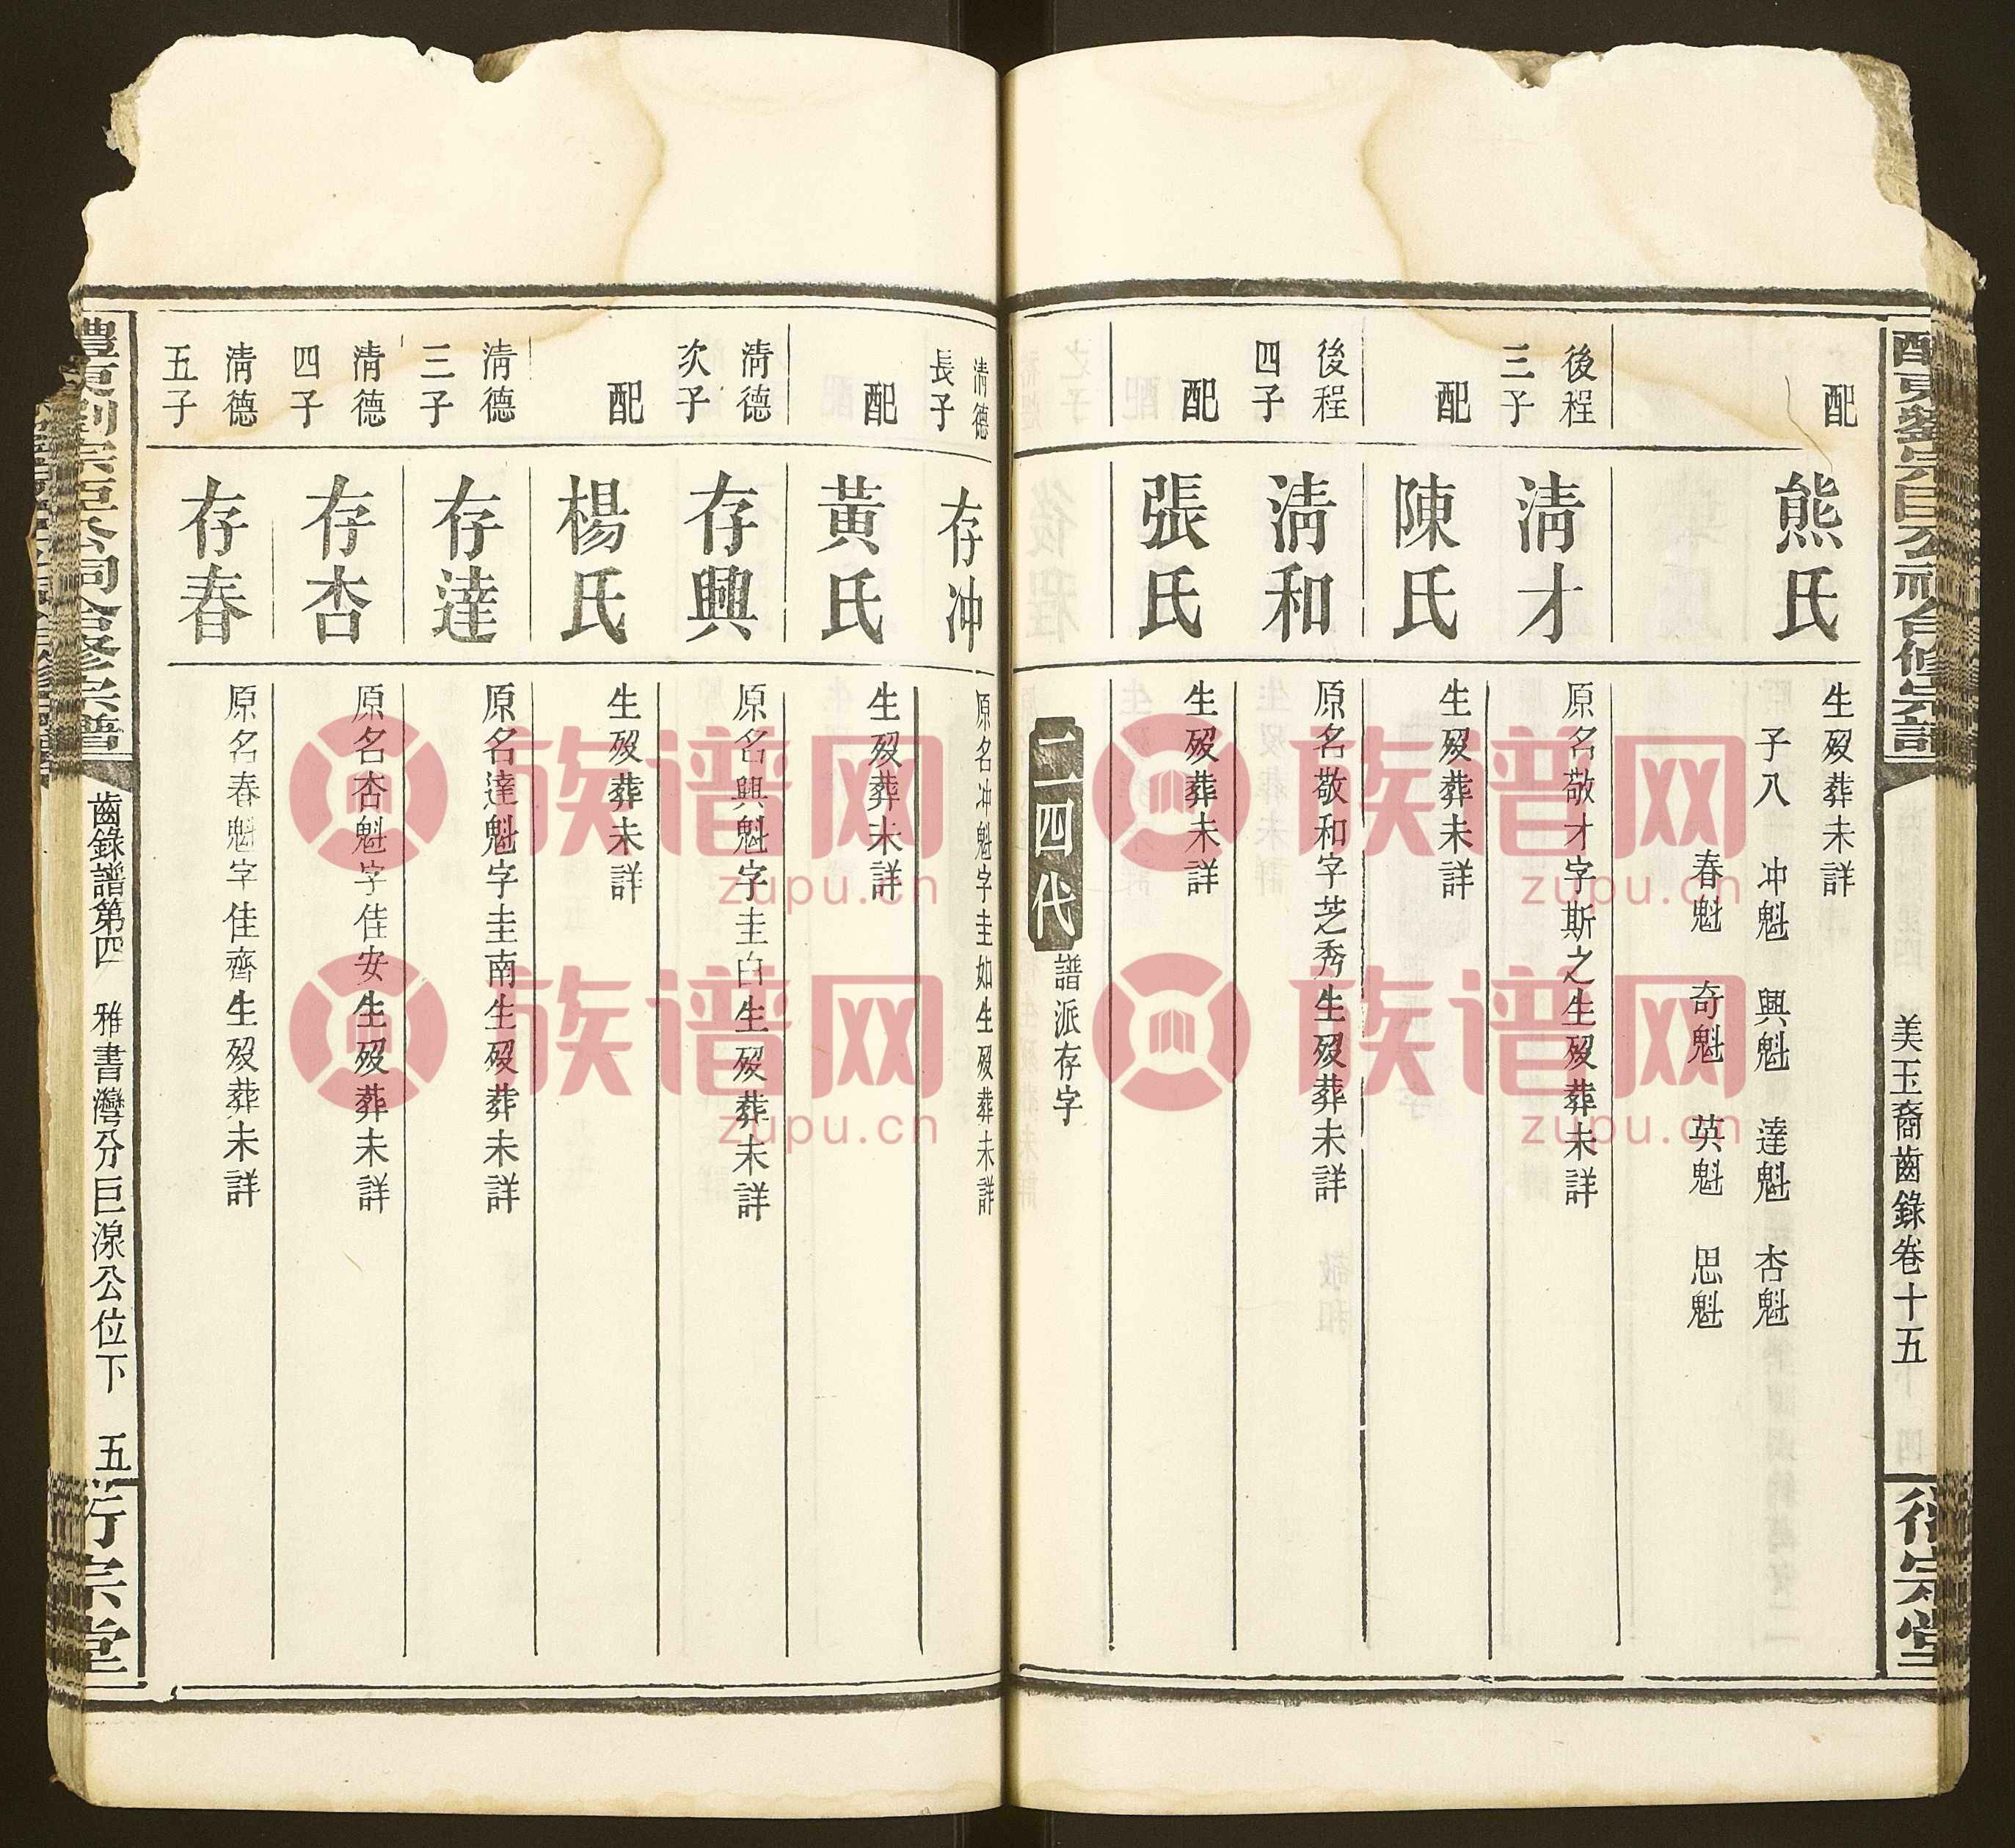 配
熊氏
生歿葬未詳
子八 冲魁 興魁 達魁 杏魁
春魁 奇魁 英魁 思魁
後程
三子
淸才
原名敬才字斯之生歿葬未詳
配
陳氏
生歿葬未詳
後程
四子
淸和
原名敬和字芝秀生歿葬未詳
配
張氏
生歿葬未詳
二四代
譜派存字
美玉裔齒錄卷十五
衍宗堂
淸德
長子
存冲
原名冲魁字圭如生歿葬未詳
配
黃氏
生歿葬未詳
淸德
次子
存興
原名興魁字圭白生歿葬未詳
配
楊氏
生歿葬未詳
淸德
三子
存達
原名達魁字圭南生歿葬未詳
淸德
四子
存杏
原名杏魁字佳安生歿葬未詳
淸德
五子
存春
原名春魁字佳齊生歿葬未詳
醴東劉宗臣公祠合修宗譜
齒錄譜第四 雅書灣分巨湶公位下 五
衍宗堂
族谱网
zupu.cn
族谱网
zupu.cn
族谱网
zupu.cn
族谱网
zupu.cn